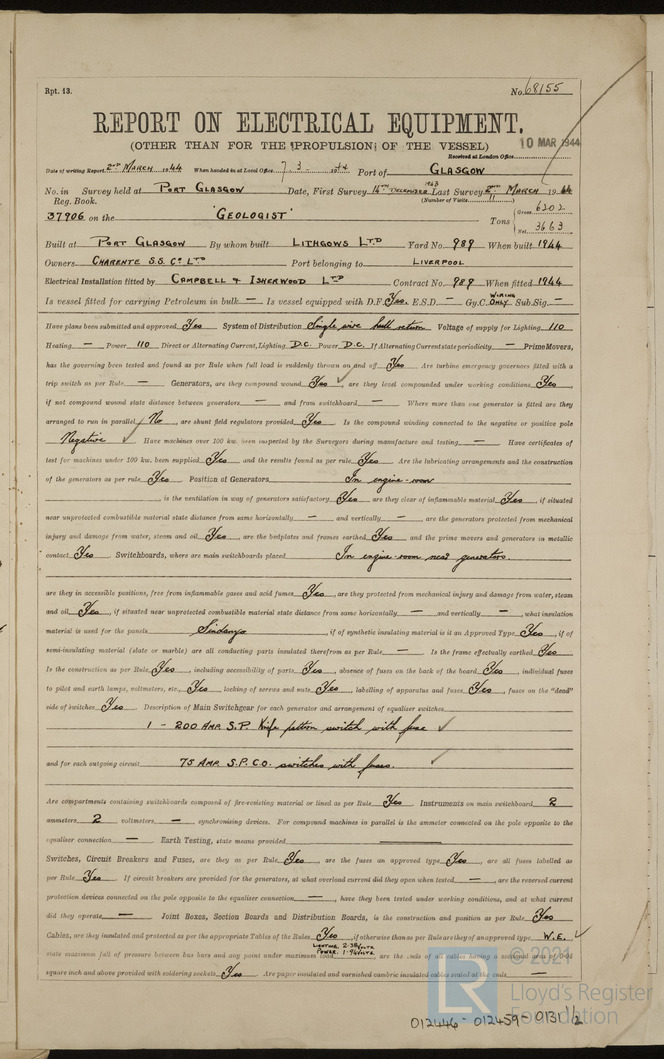 Rpt. 13.
No. 68155
REPORT ON ELECTRICAL EQUIPMENT.
(OTHER THAN FOR THE PROPULSION OF THE VESSEL)
10 MAR 1944
Received at London Office
Date of writing Report 2nd MARCH 1944 When handed in at Local Office 7.3.1944 Port of GLASGOW
No. in Survey held at PORT GLASGOW Date, First Survey 14TH DECEMBER 1943 Last Survey 2ND MARCH 1944
Reg. Book. (Number of Visits 11)
37906 on the "GEOLOGIST" Tons Gross 6202
Net 3663
Built at PORT GLASGOW By whom built LITHGOWS LTD Yard No. 989 When built 1944
Owners CHARENTE S.S. Co LTD Port belonging to LIVERPOOL
Electrical Installation fitted by CAMPBELL & ISHERWOOD LTD Contract No. 989 When fitted 1944
Is vessel fitted for carrying Petroleum in bulk — Is vessel equipped with D.F. Yes. E.S.D. — Gy.C. WIRING ONLY Sub.Sig. —
Have plans been submitted and approved Yes System of Distribution Single wire hull return Voltage of supply for Lighting 110
Heating — Power 110 Direct or Alternating Current, Lighting D.C. Power D.C. If Alternating Current state periodicity — Prime Movers,
has the governing been tested and found as per Rule when full load is suddenly thrown on and off Yes. Are turbine emergency governors fitted with a
trip switch as per Rule — Generators, are they compound wound Yes ✓, are they level compounded under working conditions Yes,
if not compound wound state distance between generators — and from switchboard — Where more than one generator is fitted are they
arranged to run in parallel No, are shunt field regulators provided Yes. Is the compound winding connected to the negative or positive pole
Negative ✓ Have machines over 100 kw. been inspected by the Surveyors during manufacture and testing — Have certificates of
test for machines under 100 kw. been supplied Yes and the results found as per rule Yes. Are the lubricating arrangements and the construction
of the generators as per rule Yes Position of Generators In engine-room
, is the ventilation in way of generators satisfactory Yes are they clear of inflammable material Yes, if situated
near unprotected combustible material state distance from same horizontally — and vertically —, are the generators protected from mechanical
injury and damage from water, steam and oil Yes, are the bedplates and frames earthed Yes and the prime movers and generators in metallic
contact Yes. Switchboards, where are main switchboards placed In engine-room near generators.
are they in accessible positions, free from inflammable gases and acid fumes Yes, are they protected from mechanical injury and damage from water, steam
and oil Yes, if situated near unprotected combustible material state distance from same horizontally — and vertically —, what insulation
material is used for the panels Sindanyo, if of synthetic insulating material is it an Approved Type Yes, if of
semi-insulating material (slate or marble) are all conducting parts insulated therefrom as per Rule — Is the frame effectually earthed Yes
Is the construction as per Rule Yes, including accessibility of parts Yes, absence of fuses on the back of the board Yes, individual fuses
to pilot and earth lamps, voltmeters, etc. Yes locking of screws and nuts Yes, labelling of apparatus and fuses Yes, fuses on the "dead"
side of switches Yes. Description of Main Switchgear for each generator and arrangement of equaliser switches
1 - 200 AMP. S.P. Knife pattern switch with fuse ✓
and for each outgoing circuit 75 AMP. S.P.C.O. switches with fuses. ✓
Are compartments containing switchboards composed of fire-resisting material or lined as per Rule Yes Instruments on main switchboard 2
ammeters 2 voltmeters — synchronising devices. For compound machines in parallel is the ammeter connected on the pole opposite to the
equaliser connection — Earth Testing, state means provided —
Switches, Circuit Breakers and Fuses, are they as per Rule Yes, are the fuses an approved type Yes, are all fuses labelled as
per Rule Yes. If circuit breakers are provided for the generators, at what overload current did they open when tested —, are the reversed current
protection devices connected on the pole opposite to the equaliser connection —, have they been tested under working conditions, and at what current
did they operate — Joint Boxes, Section Boards and Distribution Boards, is the construction and position as per Rule Yes
Cables, are they insulated and protected as per the appropriate Tables of the Rules Yes, if otherwise than as per Rule are they of an approved type W.E. ✓
LIGHTING 2.38 VOLTS
state maximum fall of pressure between bus bars and any point under maximum load POWER 1.96 VOLTS, are the ends of all cables having a sectional area of 0.04
square inch and above provided with soldering sockets Yes. Are paper insulated and varnished cambric insulated cables sealed at the ends —
© 2021
LR
Lloyd's Register
Foundation
012446 - 012459 - 0131 1/2